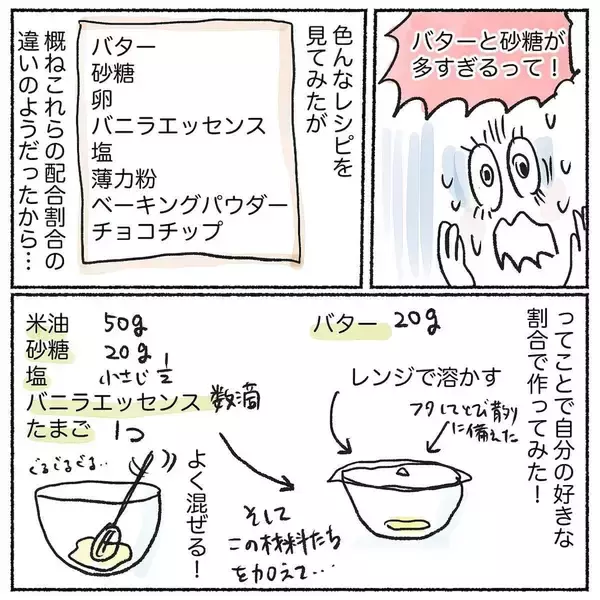 バターと砂糖が
多すぎるって!
色んなレシピを
見てみたが
バター
砂糖
卵
バニラエッセンス
塩
薄力粉
ベーキングパウダー
チョコチップ
概ねこれらの配合割合の
違いのようだったから…
ってことで自分の好きな
割合で作ってみた!
バター 20g
レンジで溶かす
フタしてとび散り
に備えた
米油 50g
砂糖 20g
塩 小さじ1/2
バニラエッセンス 数滴
たまご 1つ
ぐるぐるぐる..
よく混ぜる!
そして
この材料たち
を加えて…